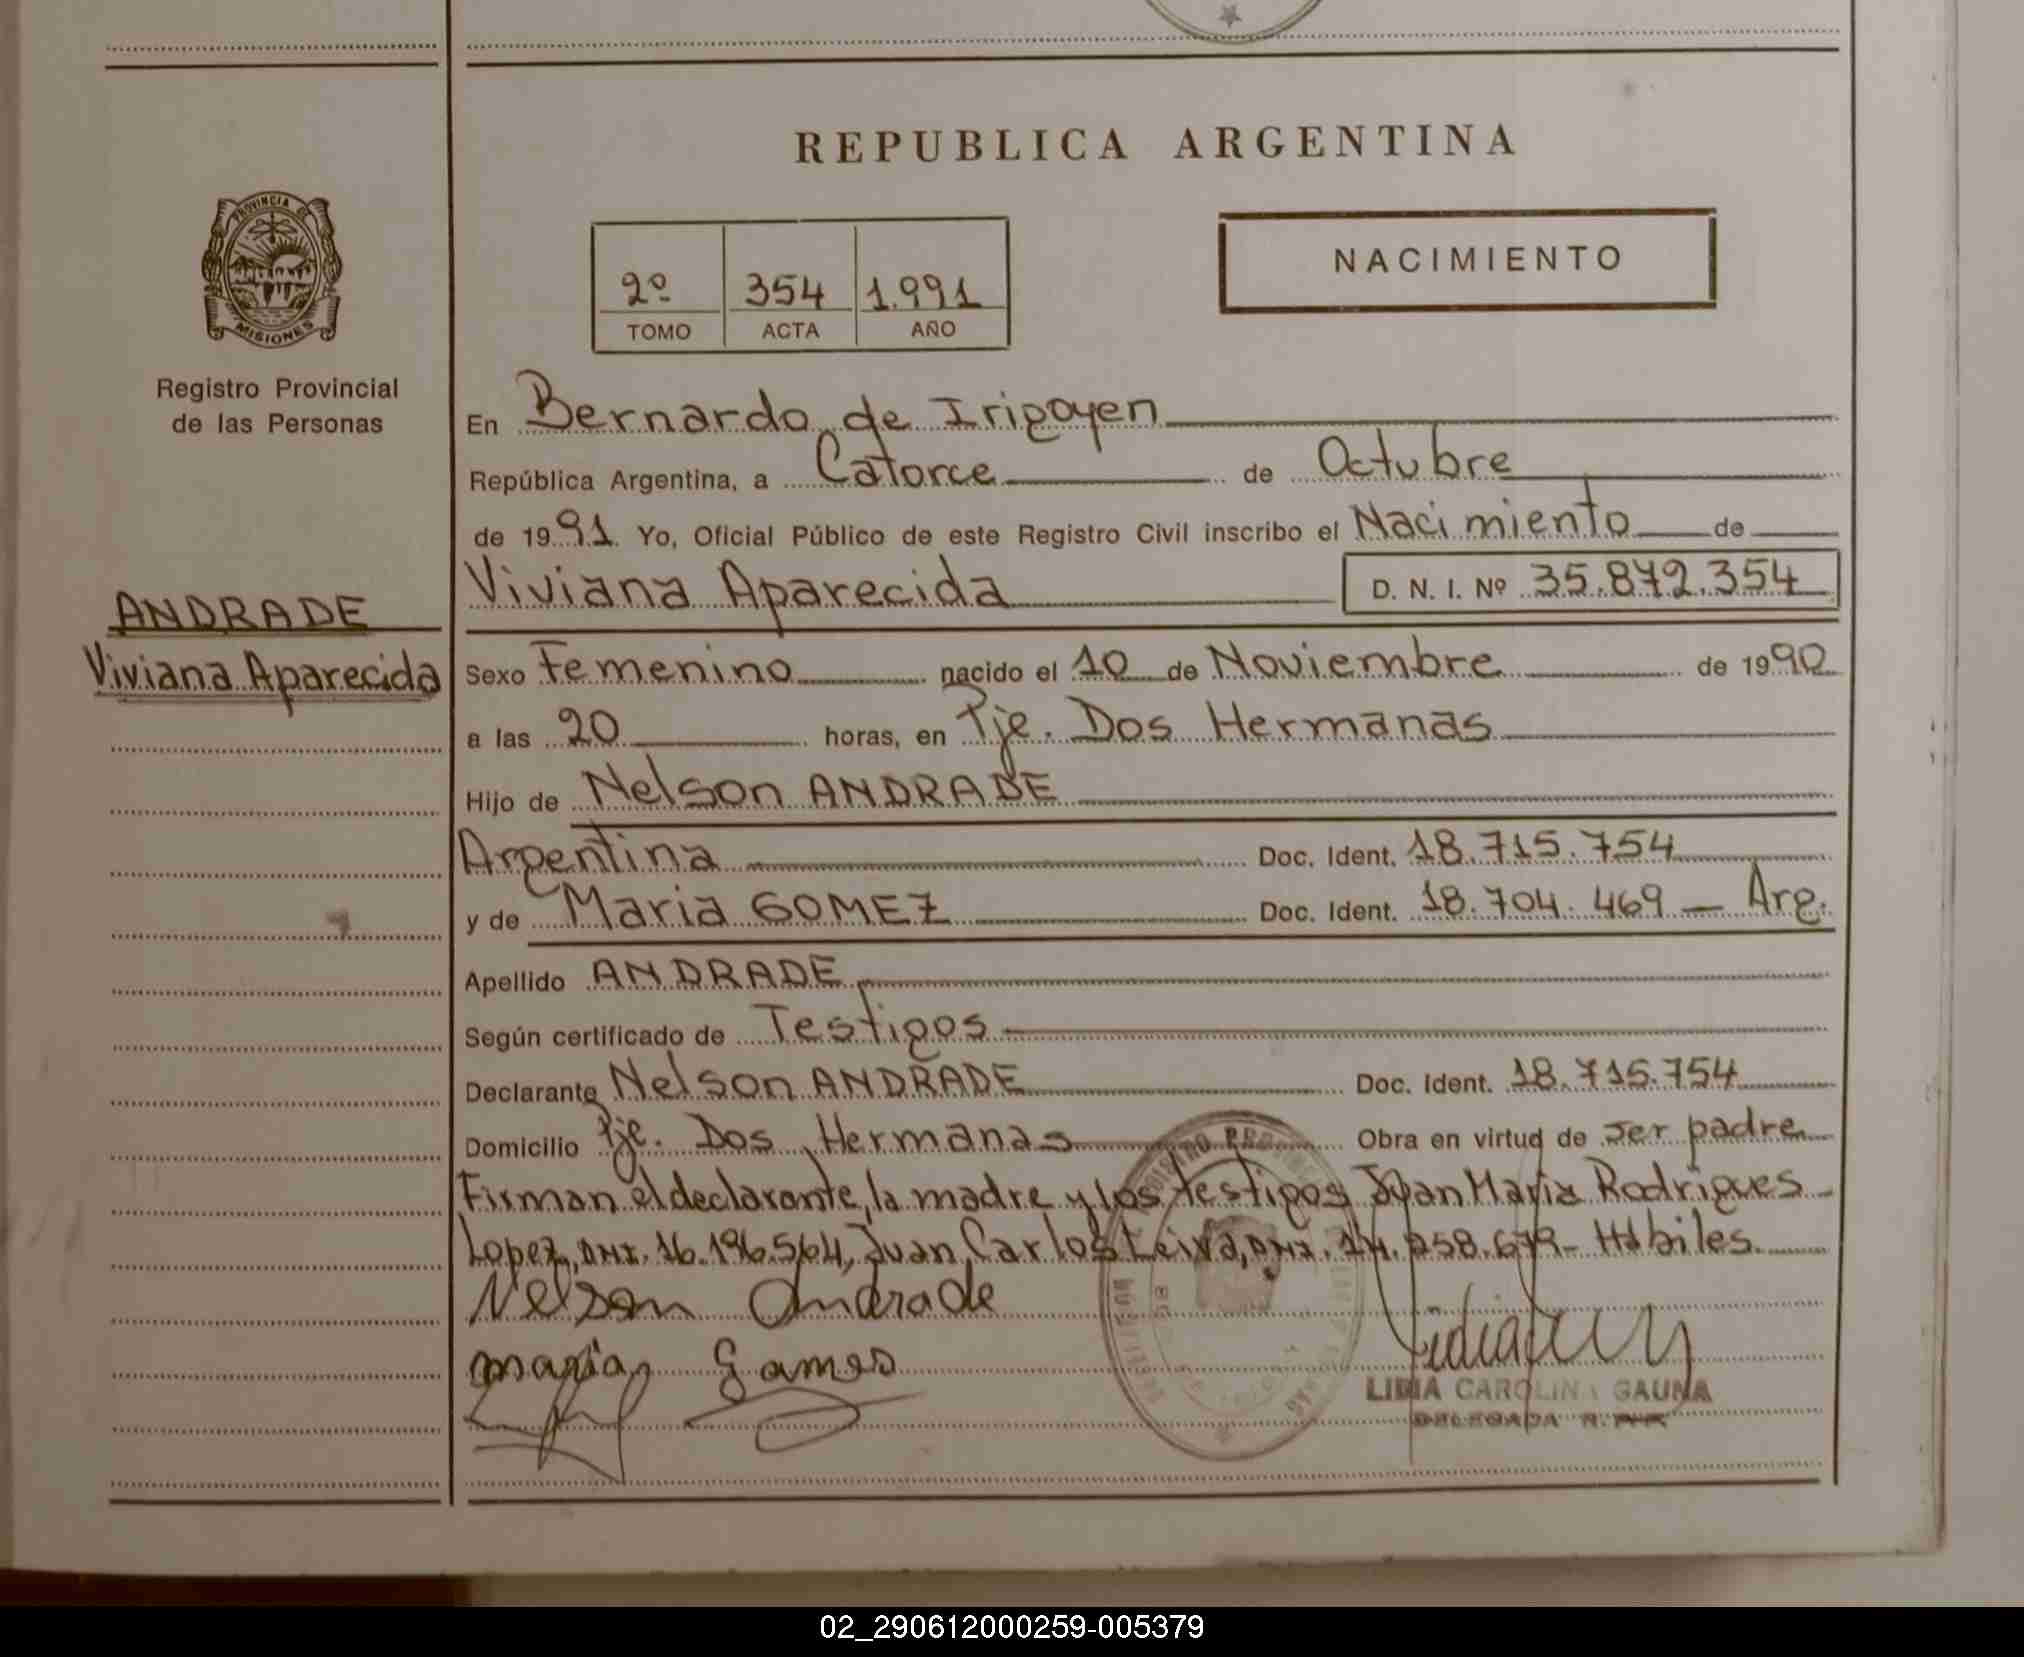 REPUBLICA ARGENTINA
PROVINCIA DE
MISIONES
Registro Provincial
de las Personas
NACIMIENTO
2º 354 1.991
TOMO ACTA AÑO
En Bernardo de Irigoyen
República Argentina, a Catorce de Octubre
de 1991. Yo, Oficial Público de este Registro Civil inscribo el Nacimiento de
Viviana Aparecida D. N. I. Nº 35.872.354
ANDRADE
Viviana Aparecida
Sexo Femenino nacido el 10 de Noviembre de 1990
a las 20 horas, en Pje. Dos Hermanas
Hijo de Nelson ANDRADE
Argentina Doc. Ident. 18.715.754
y de Maria GOMEZ Doc. Ident. 18.704.469 - Arg.
Apellido ANDRADE
Según certificado de Testigos
Declarante Nelson ANDRADE Doc. Ident. 18.715.754
Domicilio Pje. Dos Hermanas Obra en virtud de ser padre
Firman el declarante, la madre y los testigos Juan Maria Rodrigues
Lopez, DNI. 16.196.564, Juan Carlos Leiva, DNI. 14.258.679- Hábiles.
Nelson Andrade
maria gomes
LIDIA CAROLINA GAUNA
DELEGADA R.
02_290612000259-005379